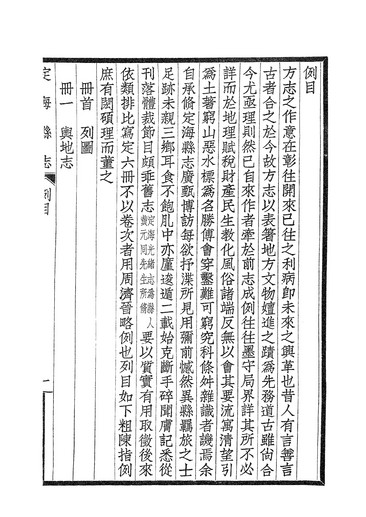 例目
方志之作意在彰往開來已往之利病即未來之興革也昔人有言善言
古者合之於今故方志以表箸地方文物嬗進之蹟為先務道古雖尙合
今尤亟理則然已自來作者牽於前志成例往往墨守局界詳其所不必
詳而於地理賦稅財產民生敎化風俗諸端反無以會其要流寓淸望引
為土著窮山惡水標為名勝傅會穿鑿難可窮究科條舛雜識者譏焉余
自承脩定海縣志廣甄博訪每欲抒渫所見用彌前憾然異縣羈旅之士
足跡未親三鄉耳食不飽肌中亦廑逡遁二載始克斷手碎聞膚記悉從
刊落體裁節目頗乖舊志定海光緒志為縣人黃元同先生所脩要以質實有用取徵後來
依類排比寫定六冊不以卷次者用周濟晉略例也列目如下粗陳指例
庶有閎碩理而董之
冊首　列圖
冊一　輿地志
定海縣志　例目　一